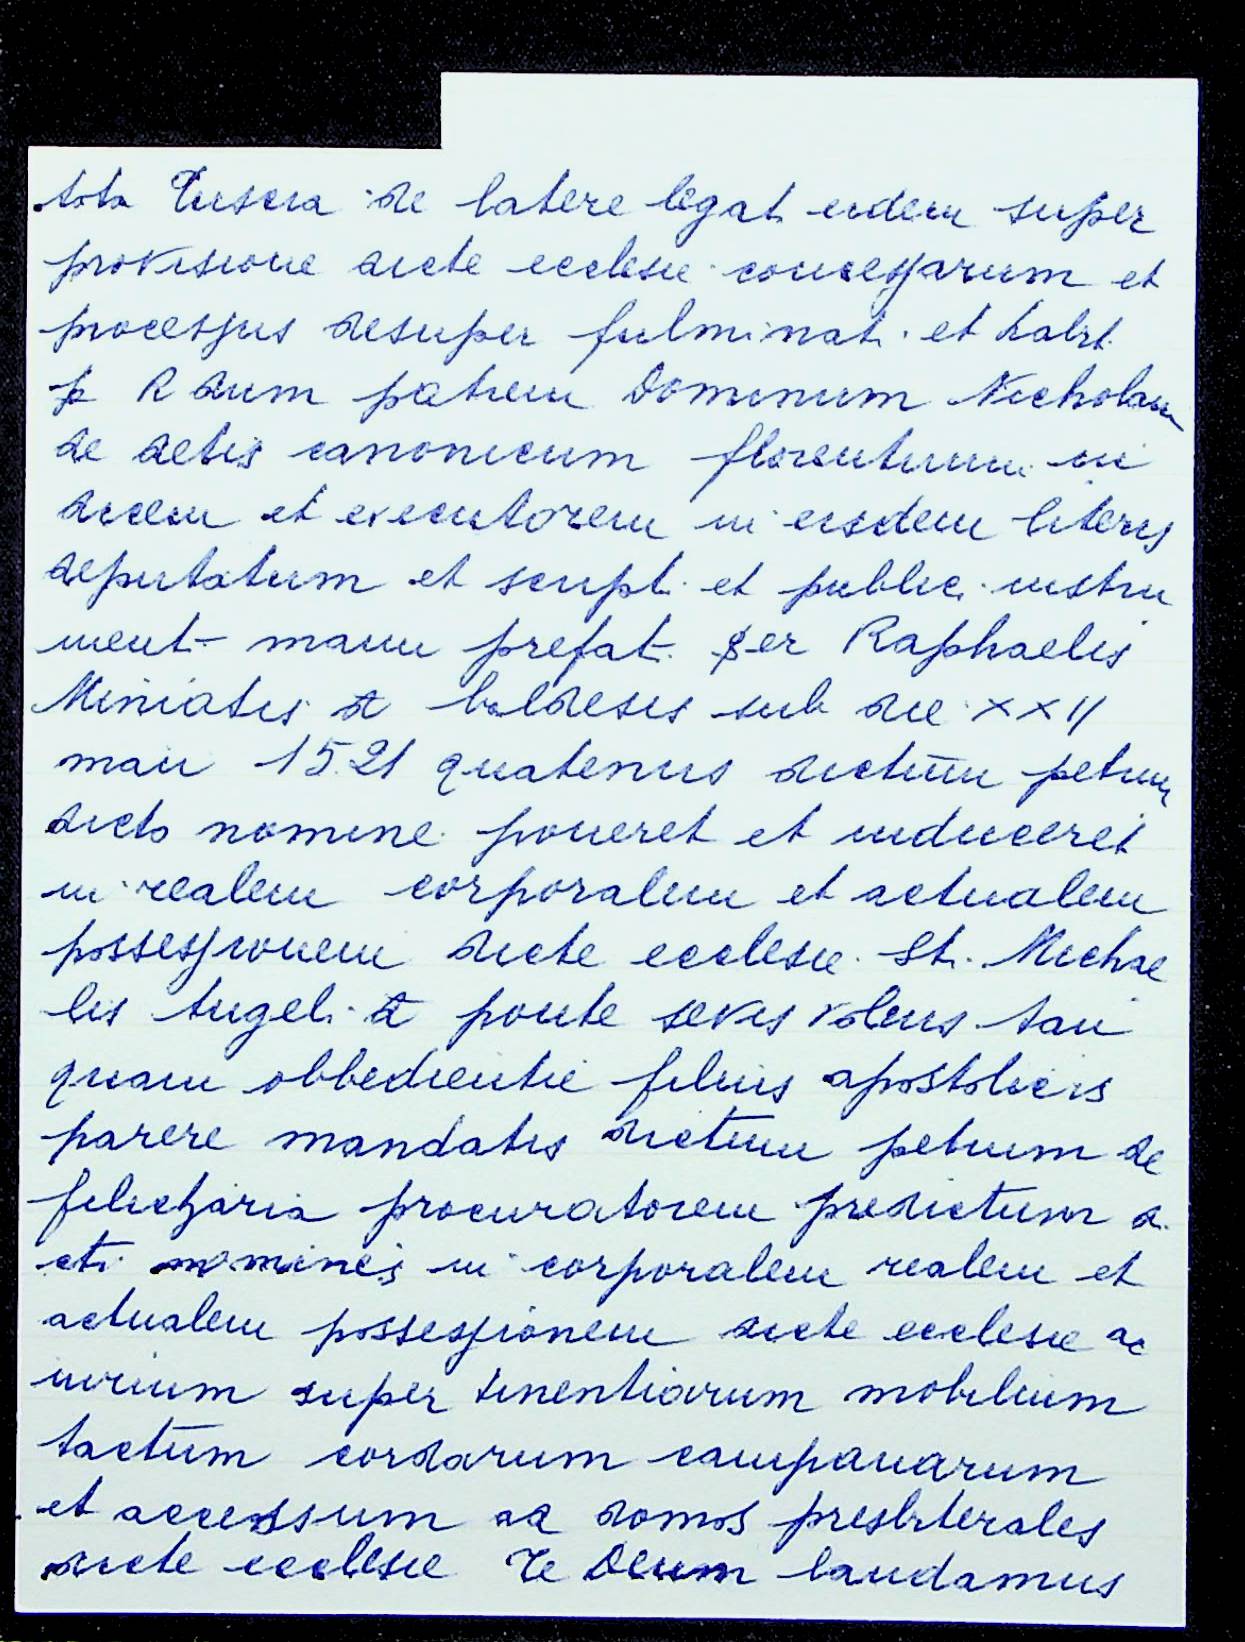 tota Tuscia de latere legat. eidem super
provisione dicte ecclesie concessarum et
processus desuper fulminat. et habit.
p R dum patrem Dominum Nicholaum
de detis canonicum florentinum iu
dicem et executorem in eisdem literis
deputatum et script. et public. instru
ment- manu prefat. ser Raphaelis
Miniatis de baldesis sub die XXII
maii 1521 quatenus dictum petrum
dicto nomine poneret et induceret
in realem corporalem et actualem
possessionem dicte ecclesie St. Michae
lis Angeli a ponte sevis volens tan
quam obbedientie filius apostolicis
parere mandatis dictum petrum de
filicharia procuratorem predictum d.
cti nominis in corporalem realem et
actualem possessionem dicte ecclesie ac
iurium super tinentiarum mobilium
tactum cordarum campanarum
et accessum ad domos presbiterales
dicte ecclesie Te Deum laudamus